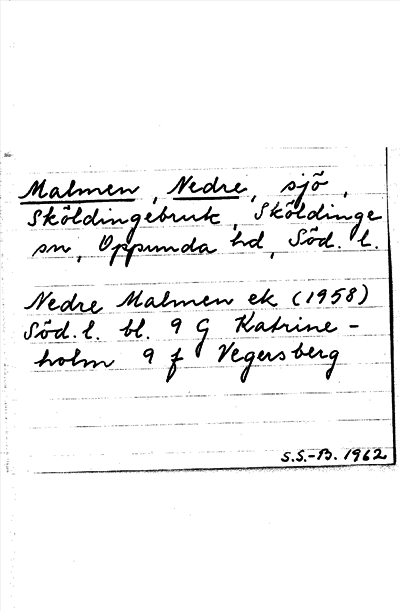 Malmen, Nedre, sjö,
Sköldingebruk, Sköldinge
sn, Oppunda hd, Söd. l.
Nedre Malmen ek (1958)
Söd. l. bl. 9 G Katrine-
holm 9 f Vegersberg
S.S.-B. 1962